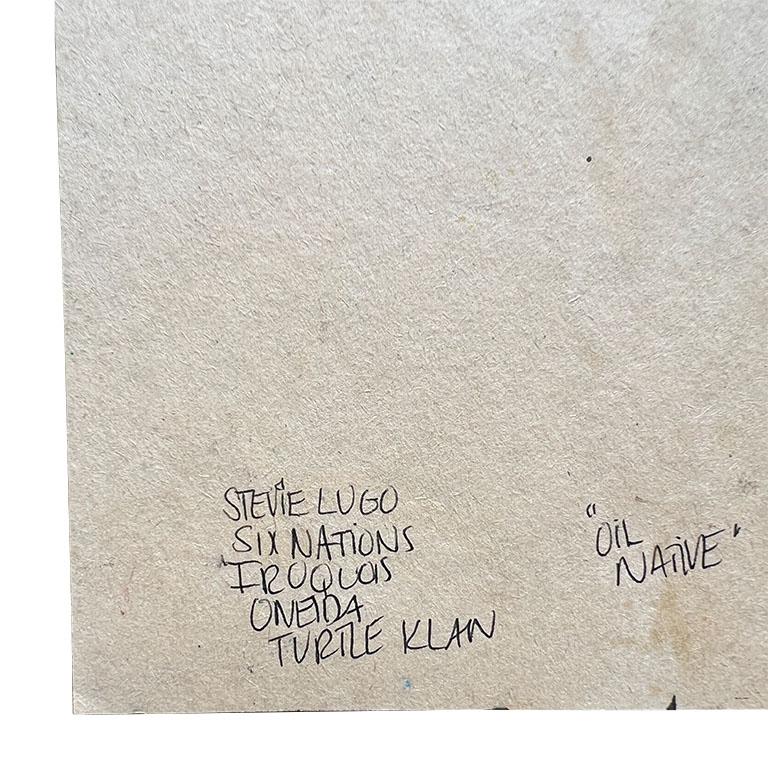 STEVIE LUGO
SIX NATIONS
IROQUOIS
ONEIDA
TURTLE KLAN
"OIL
NATIVE"